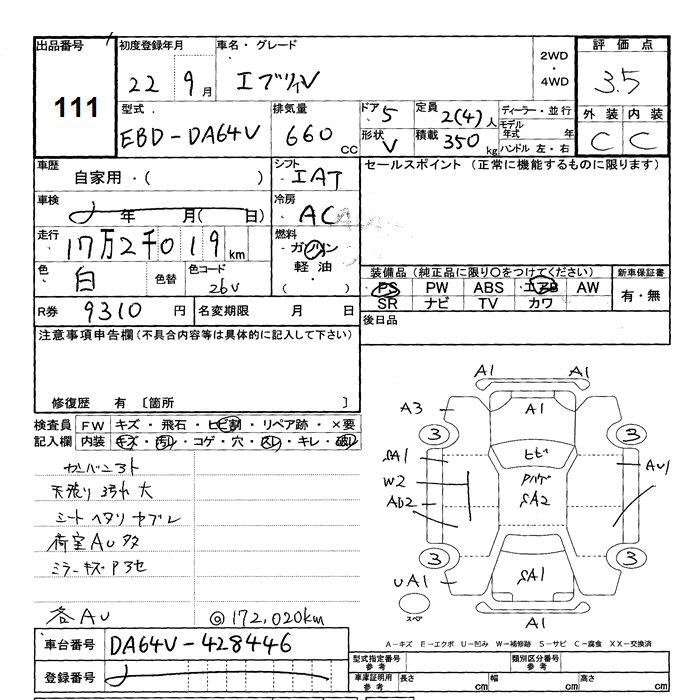 出品番号 初度登録年月 車名・グレード 2WD・4WD 評価点
111 22年 9月 エブリイV 3.5
型式 排気量 ドア 5 定員 2(4)人 ディーラー・並行 外装 内装
EBD-DA64V 660 CC 形状 V 積載 350 kg モデル年式 年 C C
ハンドル 左・右
車歴 自家用・( ) シフト IAT セールスポイント (正常に機能するものに限ります)
車検 年 月( 日) 冷房 AC
走行 17万2千019km 燃料 ガソリン
色 白 色替 色コード 26V 軽油 ( )
装備品 (純正品に限り〇をつけてください) 新車保証書
PS PW ABS エアB AW 有・無
SR ナビ TV カワ
R券 9310円 名変期限 月 日 後日品
注意事項申告欄(不具合内容等は具体的に記入して下さい)
修復歴 有 〔箇所 〕
検査員 FW キズ・飛石・ヒビ割・リペア跡・×要
記入欄 内装 キズ・汚れ・コゲ・穴・スレ・キレ・破れ
カンバンコト
天張り 汚れ 大
シート ヘタリ ヤブレ
荷室 AU 多
ミラーキズ
各AU @172,020km
A1 A1
A3 A1
3 3
SA1 ヒビ AU1
W2 SA2
AU2
3 3
UA1 SA1
スペア A1
A-キズ E-エクボ U-凹み W-補修跡 S-サビ C-腐食 XX-交換済
車台番号 DA64V-428446
登録番号
型式指定番号 参考 類別区分番号 参考
車庫証明用 参考 長さ cm 幅 cm 高さ cm